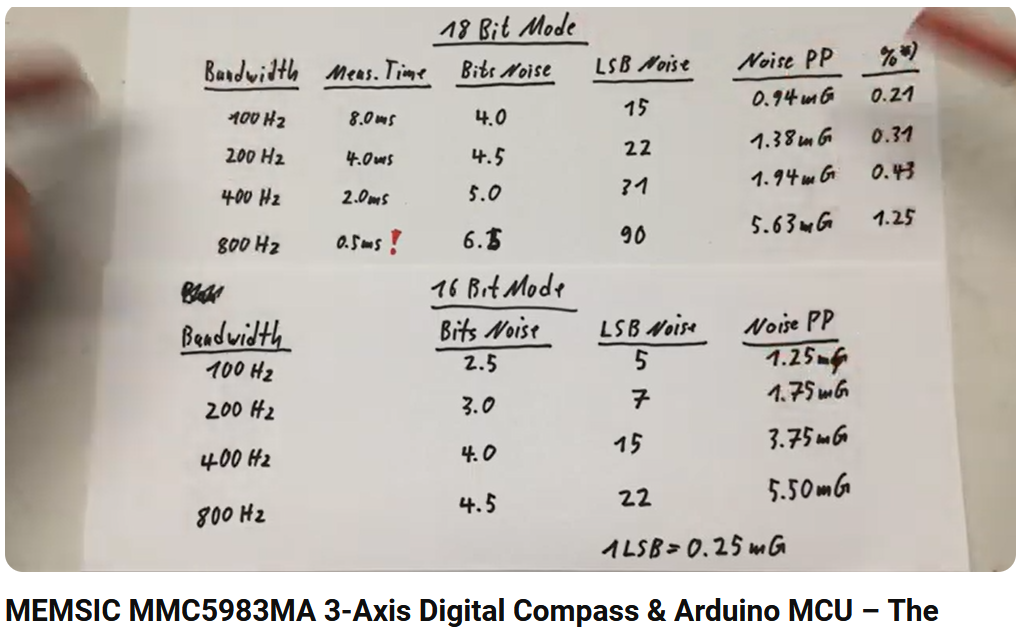 18 Bit Mode
Bandwidth Meas. Time Bits Noise LSB Noise Noise PP % *)
100 Hz 8.0ms 4.0 15 0.94mG 0.21
200 Hz 4.0ms 4.5 22 1.38mG 0.31
400 Hz 2.0ms 5.0 31 1.94mG 0.43
800 Hz 0.5ms! 6.5 90 5.63mG 1.25
16 Bit Mode
Bandwidth Bits Noise LSB Noise Noise PP
100 Hz 2.5 5 1.25mG
200 Hz 3.0 7 1.75mG
400 Hz 4.0 15 3.75mG
800 Hz 4.5 22 5.50mG
1 LSB = 0.25mG
MEMSIC MMC5983MA 3-Axis Digital Compass & Arduino MCU – The